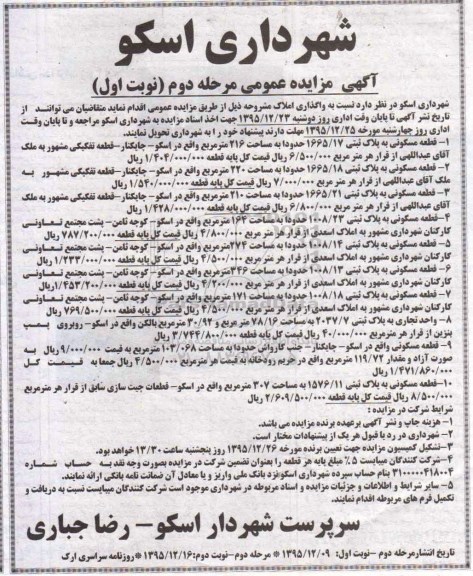 شهرداری اسکو
آگهی مزایده عمومی مرحله دوم (نوبت اول)
شهرداری اسکو در نظر دارد نسبت به واگذاری املاک مشروحه ذیل از طریق مزایده عمومی اقدام نماید متقاضیان می توانند از
تاریخ نشر آگهی تا پایان وقت اداری روز دوشنبه ۱۳۹۵/۱۲/۲۳ جهت اخذ اسناد مزایده به شهرداری اسکو مراجعه و تا پایان وقت
اداری روز چهارشنبه مورخه ۱۳۹۵/۱۲/۲۵ مهلت دارند پیشنهاد خود را به شهرداری تحویل نمایند.
۱- قطعه مسکونی به پلاک ثبتی ۱۶۶۵/۱۷ حدودا به مساحت ۲۱۶ مترمربع واقع در اسکو- چایکنار-قطعه تفکیکی مشهور به ملک
آقای عبداللهی از قرار هر متر مربع ۶/۵۰۰/۰۰۰ ریال قیمت کل پایه قطعه ۱/۴۰۴/۰۰۰/۰۰۰ ریال
۲- قطعه مسکونی به پلاک ثبتی ۱۶۶۵/۱۸ حدودا به مساحت ۲۲۰ مترمربع واقع در اسکو- چایکنار-قطعه تفکیکی مشهور به
ملک آقای عبداللهی از قرار هر متر مربع ۷/۰۰۰/۰۰۰ ریال قیمت کل پایه قطعه ۱/۵۴۰/۰۰۰/۰۰۰ ریال
۳- قطعه مسکونی به پلاک ثبتی ۱۶۶۵/۲۱ حدودا به مساحت ۲۱۰ مترمربع واقع در اسکو- چایکنار-قطعه تفکیکی مشهور به ملک
آقای عبداللهی از قرار هر متر مربع ۶/۸۰۰/۰۰۰ ریال قیمت کل پایه قطعه ۱/۴۲۸/۰۰۰/۰۰۰ ریال
۴- قطعه مسکونی به پلاک ثبتی ۱۰۰۸/۲۳ حدودا به مساحت ۱۶۴ مترمربع واقع در اسکو- کوچه ثامن- پشت مجتمع تعاونی
کارکنان شهرداری مشهور به املاک اسعدی از قرار هر متر مربع ۴/۸۰۰/۰۰۰ ریال قیمت کل پایه قطعه ۷۸۷/۲۰۰/۰۰۰ ریال
۵- قطعه مسکونی به پلاک ثبتی ۱۰۰۸/۱۴ حدودا به مساحت ۲۷۴مترمربع واقع در اسکو- کوچه ثامن- پشت مجتمع تعاونی
کارکنان شهرداری مشهور به املاک اسعدی از قرار هر متر مربع ۴/۵۰۰/۰۰۰ ریال قیمت کل پایه قطعه ۱/۲۳۳/۰۰۰/۰۰۰ ریال
۶- قطعه مسکونی به پلاک ثبتی ۱۰۰۸/۱۳ حدودا به مساحت ۳۴۶مترمربع واقع در اسکو- کوچه ثامن- پشت مجتمع تعاونی
کارکنان شهرداری مشهور به املاک اسعدی از قرار هر متر مربع ۴/۲۰۰/۰۰۰ ریال قیمت کل پایه قطعه ۱/۴۵۳/۲۰۰/۰۰۰ ریال
۷- قطعه مسکونی به پلاک ثبتی ۱۰۰۸/۱۸ حدودا به مساحت ۱۷۱ مترمربع واقع در اسکو- کوچه ثامن- پشت مجتمع تعاونی
کارکنان شهرداری مشهور به املاک اسعدی از قرار هر متر مربع ۴/۵۰۰/۰۰۰ ریال قیمت کل پایه قطعه ۷۶۹/۵۰۰/۰۰۰ ریال
۸- واحد تجاری به پلاک ثبتی ۲۰۳۷/۷ به مساحت ۷۸/۱۶ متر مربع و ۳۰/۹۲ مترمربع بالکن واقع در اسکو- روبروی پمپ
بنزین از قرار هر متر مربع ۴۰/۰۰۰/۰۰۰ ریال قیمت کل پایه قطعه ۳/۷۴۴/۸۰۰/۰۰۰ ریال
۹- قطعه مسکونی واقع در اسکو- چایکنار- جنب کاروانی حدودا به مساحت ۱۰۳/۰۶۸ مترمربع به قیمت ۹/۰۰۰/۰۰۰ ریال به
صورت آزاد و مقدار ۱۱۹/۷۲ مترمربع واقع در حریم رودخانه به قیمت هر مترمربع ۴/۵۰۰/۰۰۰ ریال جمعا به قیمت کل
۱/۴۷۱/۸۶۰/۰۰۰ ریال
۱۰-قطعه مسکونی به پلاک ثبتی ۱۵۷۶/۱۱ به مساحت ۳۰۷ مترمربع واقع در اسکو- قطعات جیت سازی سابق از قرار هر مترمربع
۸/۵۰۰/۰۰۰ ریال قیمت کل پایه قطعه ۲/۶۰۹/۵۰۰/۰۰۰ ریال
شرایط شرکت در مزایده :
۱- هزینه چاپ و نشر آگهی برعهده برنده مزایده می باشد.
۲- شهرداری در رد یا قبول هر یک از پیشنهادات مختار است.
۳-تشکیل کمیسیون مزایده جهت تعیین برنده مورخه ۱۳۹۵/۱۲/۲۶ روز پنجشنبه ساعت ۱۳/۳۰ خواهد بود.
۴-شرکت کنندگان میبایست ۵٪ مبلغ پایه هر قطعه را بعنوان تضمین شرکت در مزایده بصورت وجه نقد به حساب شماره
۳۱۰۰۰۰۰۴۱۸۰۰۴ بنام حساب سپرده شهرداری اسکونزد بانک ملی واریز و یا معادل آن ضمانت نامه بانکی ارائه نمایند.
۵- سایر شرایط و اطلاعات و جزئیات مزایده و اسناد مربوطه در شهرداری موجود است شرکت کنندگان میبایست نسبت به دریافت و
تکمیل فرم های مربوطه اقدام نمایند.
سرپرست شهردار اسکو- رضا جباری
تاریخ انتشارمرحله دوم -نوبت اول: ۱۳۹۵/۱۲/۰۹ * مرحله دوم-نوبت دوم:۱۳۹۵/۱۲/۱۶ *روزنامه سراسری ارک